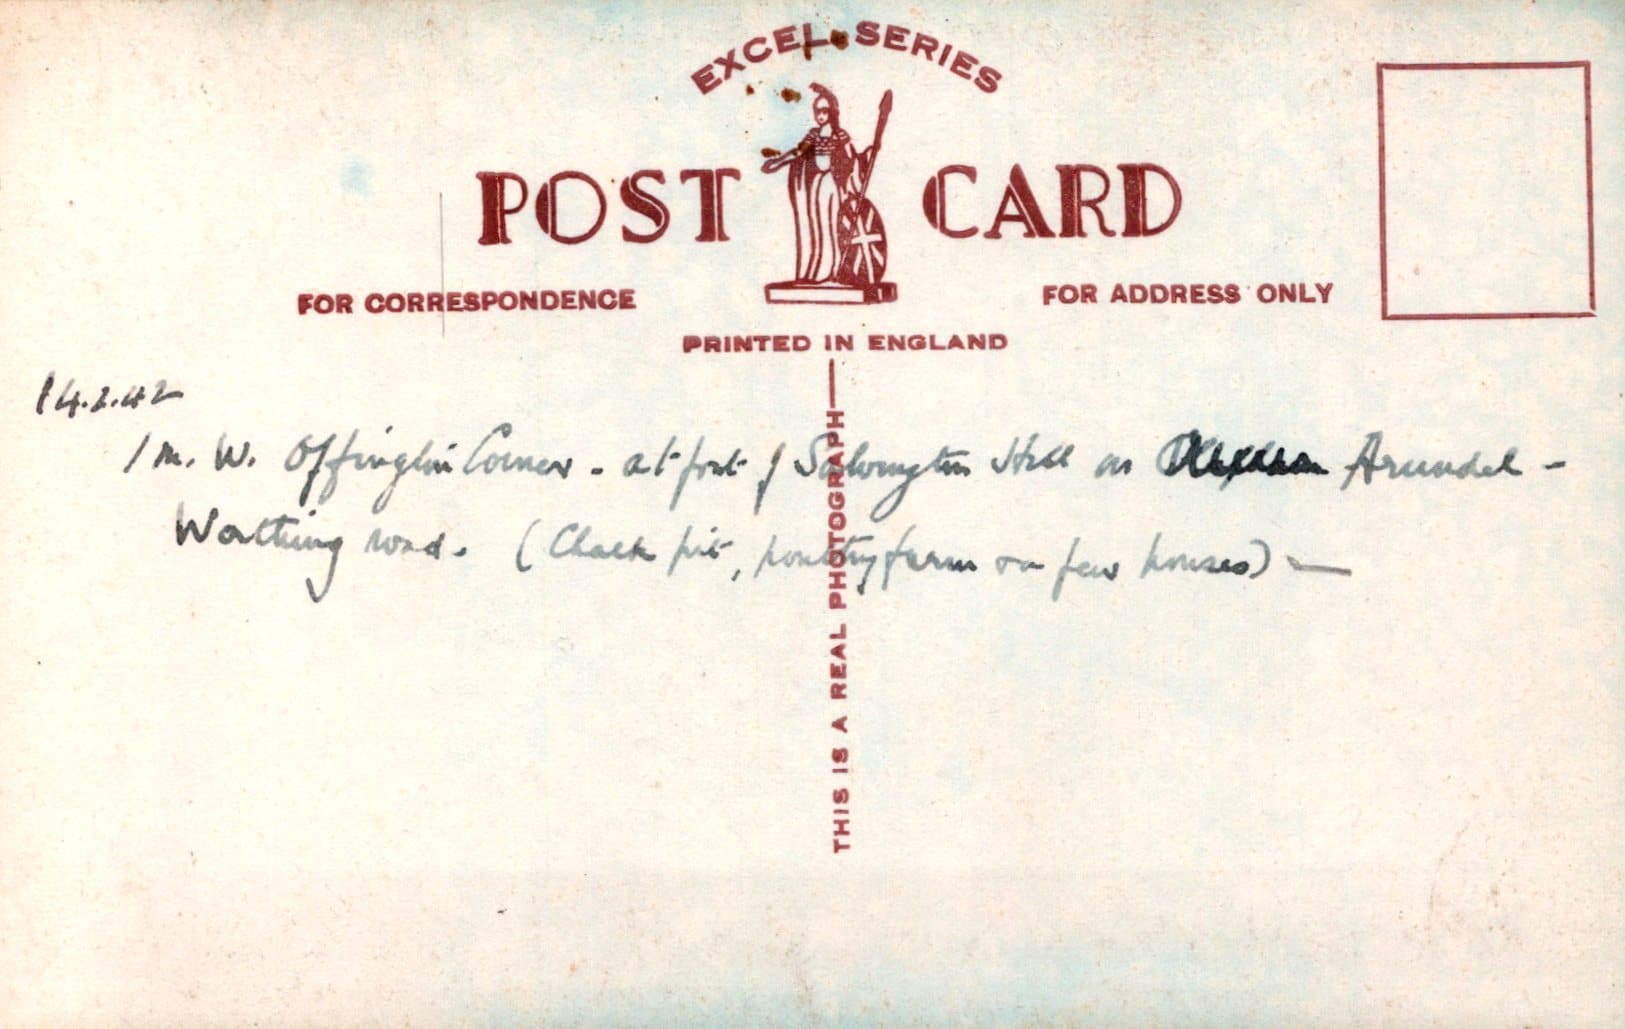 EXCEL SERIES
POST CARD
FOR CORRESPONDENCE
FOR ADDRESS ONLY
PRINTED IN ENGLAND
14.2.42
1 m. W. Offington Corner - at foot of Salvington Hill on Arundel -
Worthing road. (Chalk pit, poultry farm on few houses) —
THIS IS A REAL PHOTOGRAPH